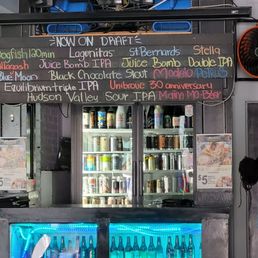 NOW ON DRAFT
Dogfish 120min Lagunitas St Bernards Stella
Allagash Juice Bomb IPA Juice Bomb Double IPA
Blue Moon Black Chocolate Stout Modelo
Equilibrium triple IPA Unibroue 30 anniversary
Hudson Valley Sour IPA
$5